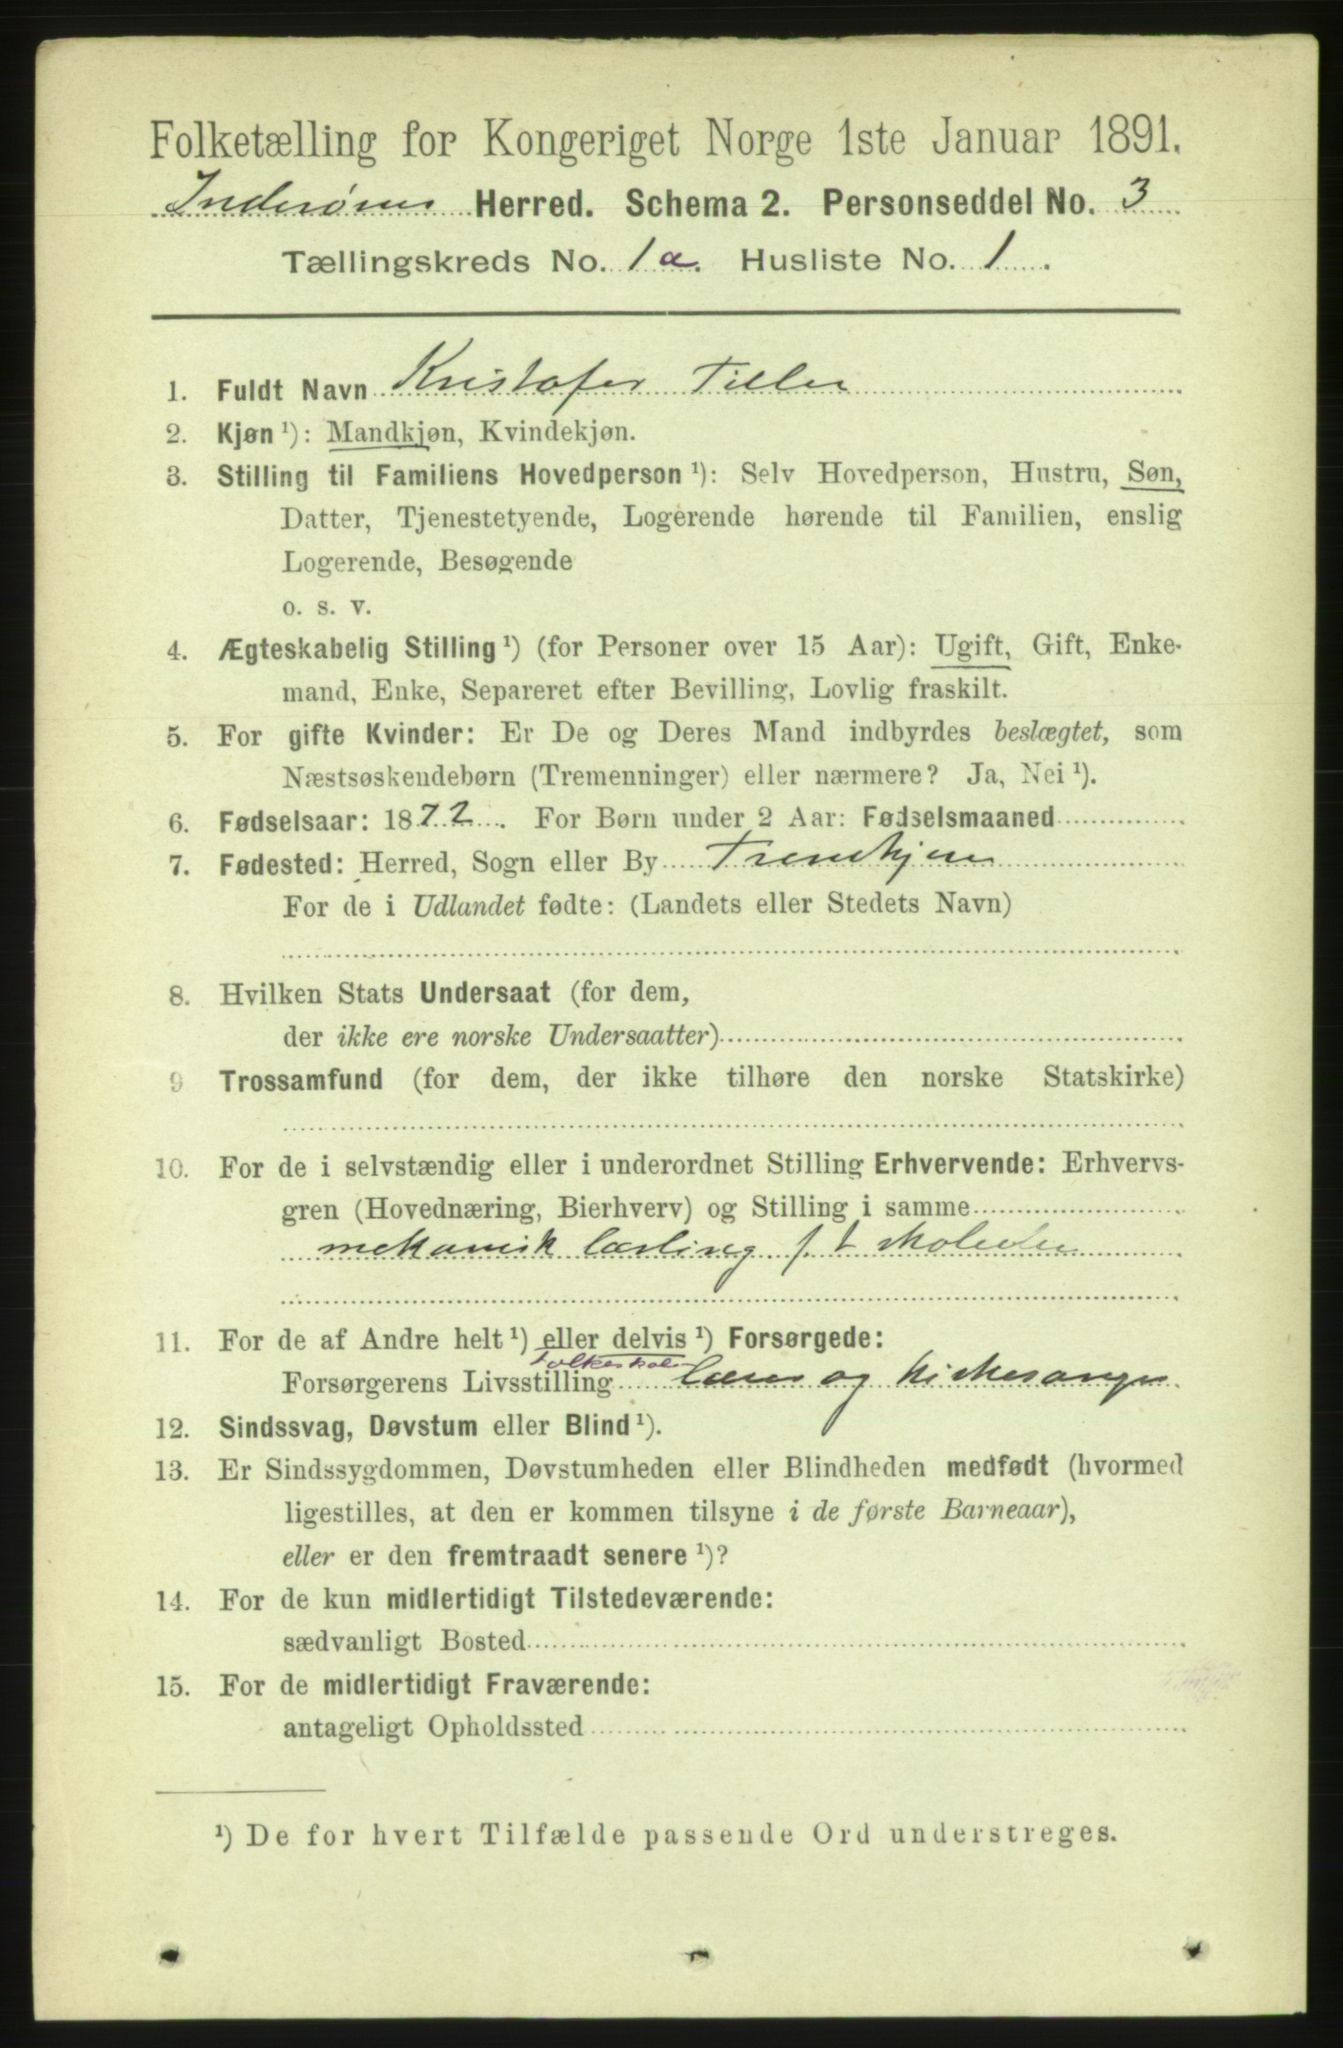 Folketælling for Kongeriget Norge 1ste Januar 1891.
Inderøens Herred. Schema 2. Personseddel No. 3
Tællingskreds No. 1 a. Husliste No. 1.
1. Fuldt Navn Kristofer Tiller
2. Kjøn ¹): Mandkjøn, Kvindekjøn.
3. Stilling til Familiens Hovedperson ¹): Selv Hovedperson, Hustru, Søn,
Datter, Tjenestetyende, Logerende hørende til Familien, enslig
Logerende, Besøgende
o. s. v.
4. Ægteskabelig Stilling ¹) (for Personer over 15 Aar): Ugift, Gift, Enke-
mand, Enke, Separeret efter Bevilling, Lovlig fraskilt.
5. For gifte Kvinder: Er De og Deres Mand indbyrdes beslægtet, som
Næstsøskendebørn (Tremenninger) eller nærmere? Ja, Nei ¹).
6. Fødselsaar: 1872. For Børn under 2 Aar: Fødselsmaaned
7. Fødested: Herred, Sogn eller By Trondhjem
For de i Udlandet fødte: (Landets eller Stedets Navn)
8. Hvilken Stats Undersaat (for dem,
der ikke ere norske Undersaatter)
9 Trossamfund (for dem, der ikke tilhøre den norske Statskirke)
10. For de i selvstændig eller i underordnet Stilling Erhvervende: Erhvervs-
gren (Hovednæring, Bierhverv) og Stilling i samme
mekanisk lærling f. t skoleelev
11. For de af Andre helt ¹) eller delvis ¹) Forsørgede:
folkeskole
Forsørgerens Livsstilling lærer og kirkesanger.
12. Sindssvag, Døvstum eller Blind ¹).
13. Er Sindssygdommen, Døvstumheden eller Blindheden medfødt (hvormed
ligestilles, at den er kommen tilsyne i de første Barneaar),
eller er den fremtraadt senere ¹)?
14. For de kun midlertidigt Tilstedeværende:
sædvanligt Bosted
15. For de midlertidigt Fraværende:
antageligt Opholdssted
¹) De for hvert Tilfælde passende Ord understreges.